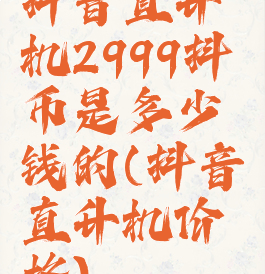 抖音直升
机2999抖
币是多少
钱的(抖音
直升机价
格)